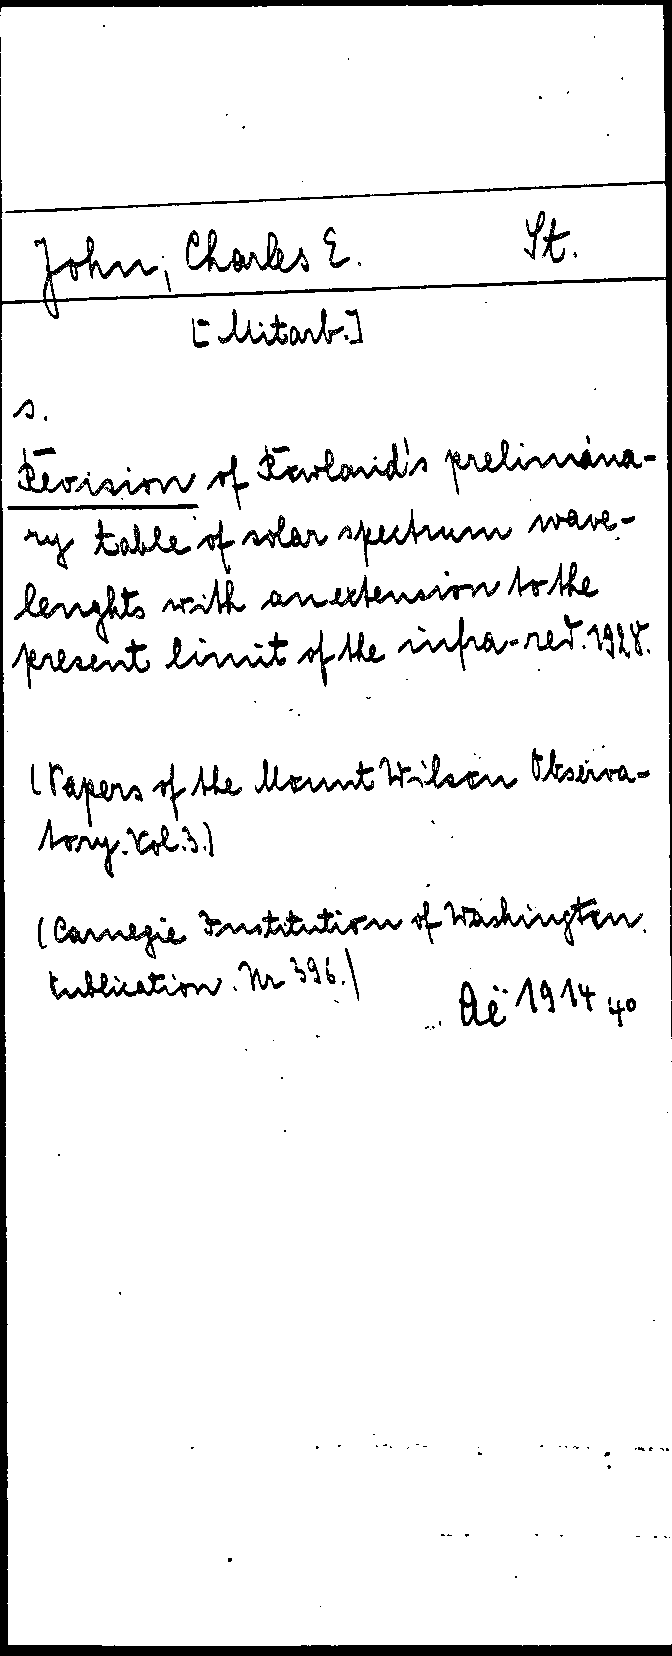 John, Charles E. St.
[Mitarb.]
s.
Revision of Rowland's prelimina-
ry table of solar spectrum wave-
lenghts with an extension to the
present limit of the infra-red. 1928.
(Papers of the Mount Wilson Observa-
tory. Vol. 3.)
(Carnegie Institution of Washington.
Publication. Nr 396.)
Aë 1914 40